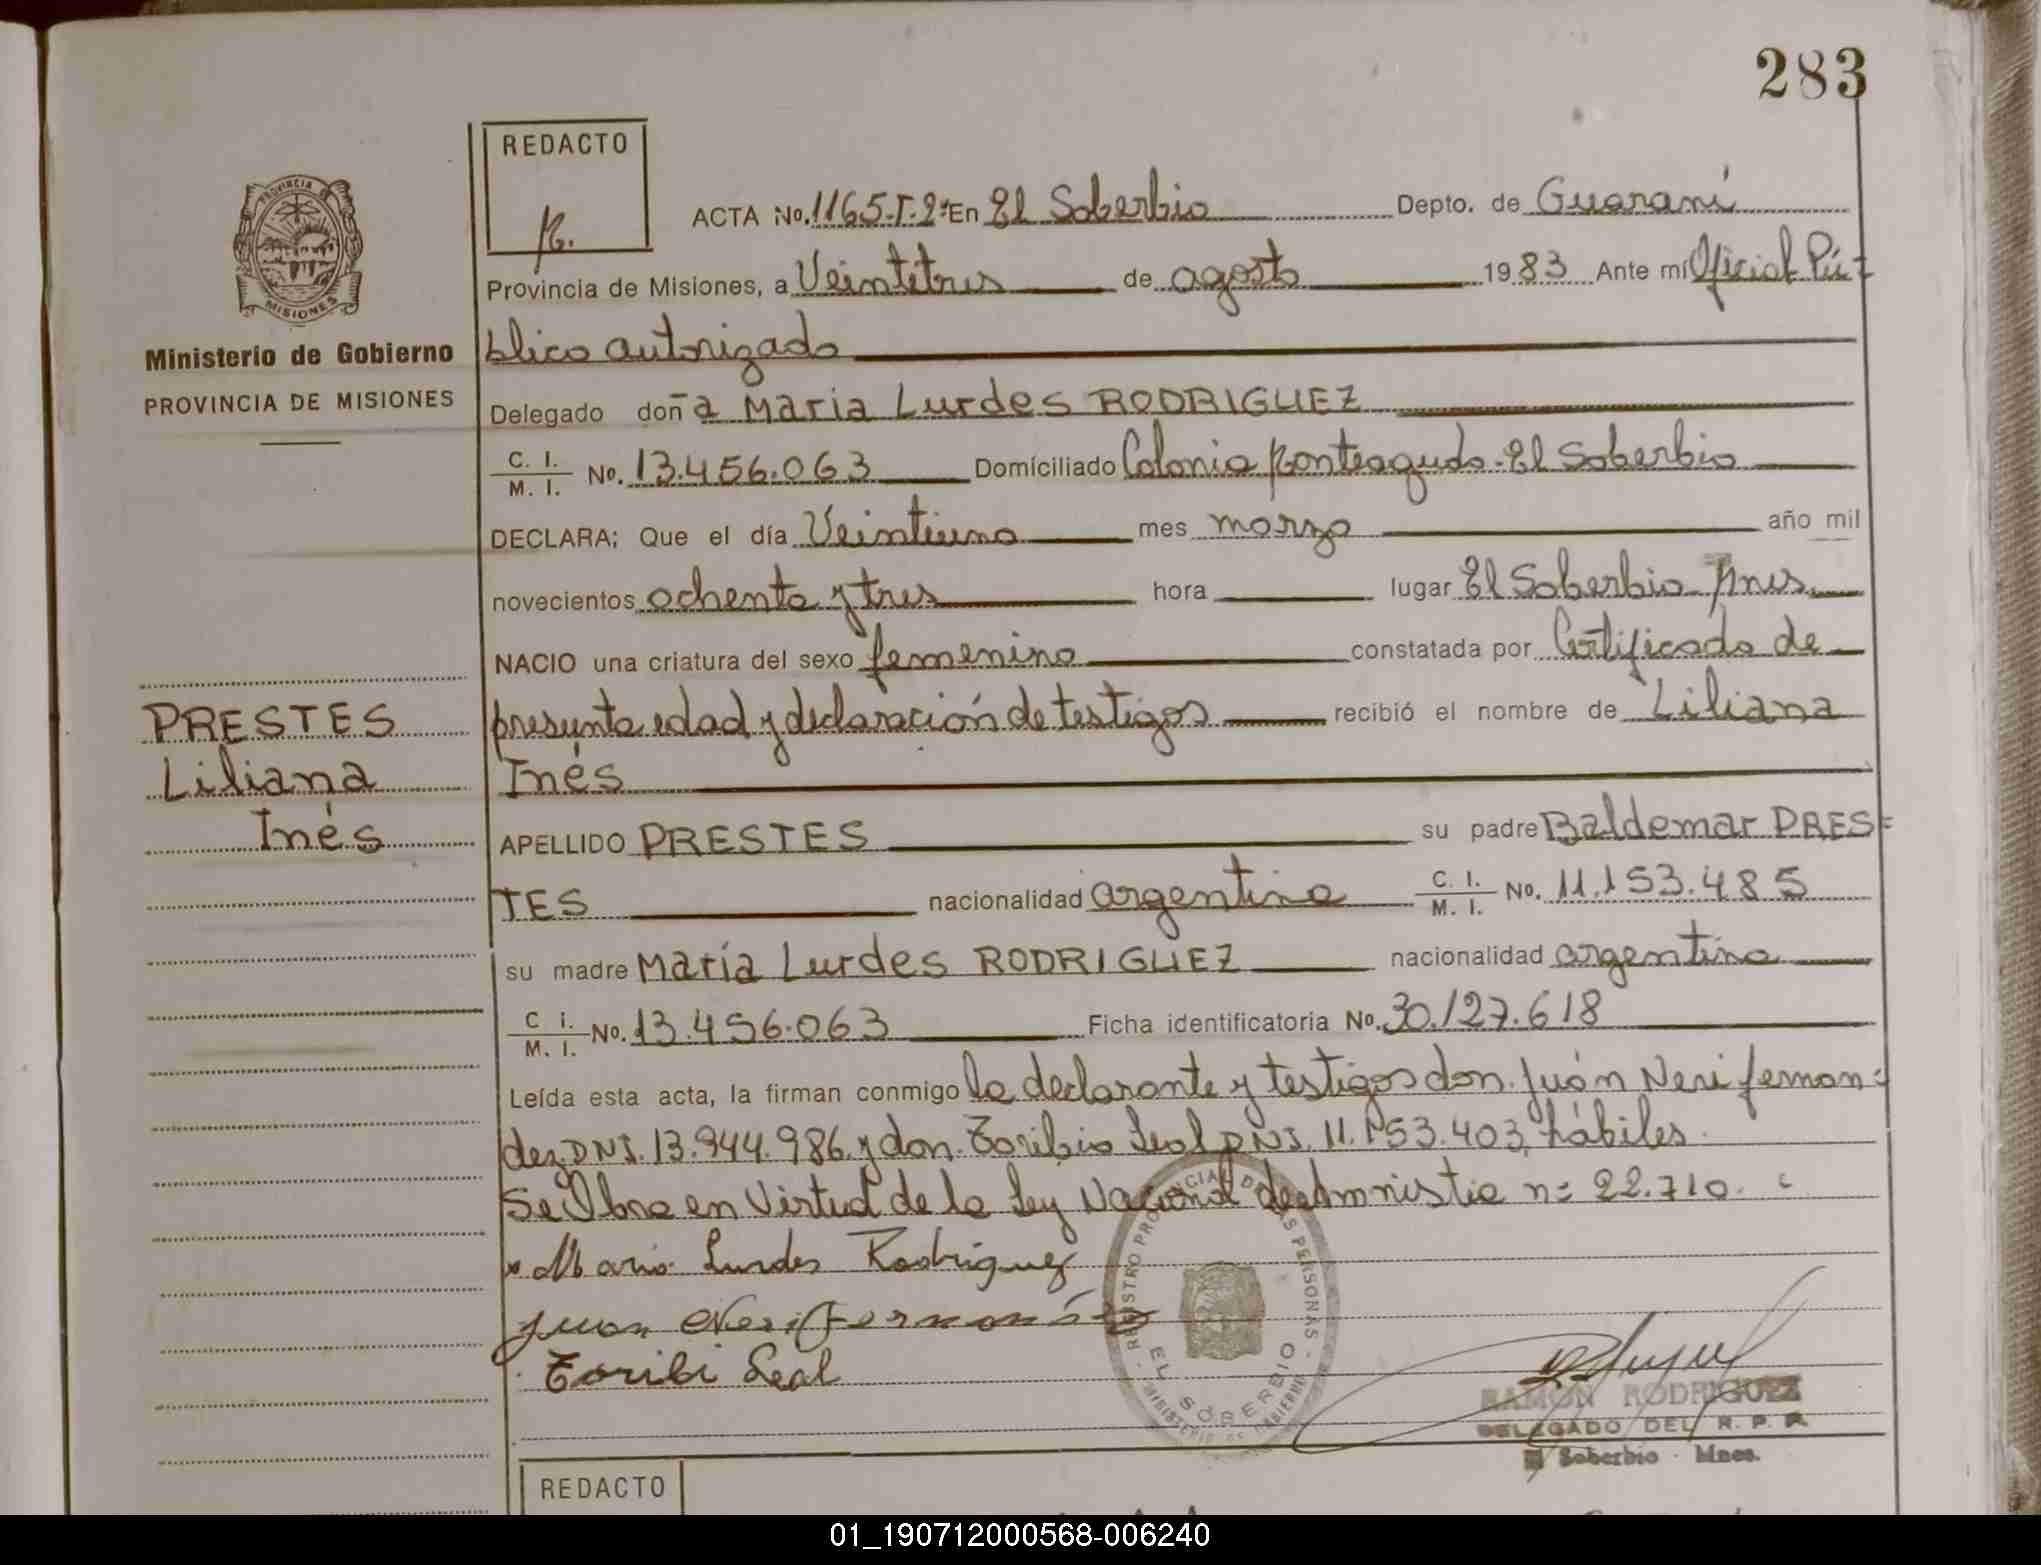 283
REDACTO
ACTA No. 1165.T.2º En El Soberbio Depto. de Guaraní
Provincia de Misiones, a Veintitres de agosto 1983 Ante mi Oficial Pú-
blico autorizado
PROVINCIA DE
MISIONES
Ministerio de Gobierno
PROVINCIA DE MISIONES
Delegado doña Maria Lurdes RODRIGUEZ
C. I. / M. I. No. 13.456.063 Domiciliado Colonia Monteagudo - El Soberbio
DECLARA; Que el día Veintiuno mes marzo año mil
novecientos ochenta y tres hora lugar El Soberbio Mnes.
NACIO una criatura del sexo femenino constatada por Certificado de
presunta edad y declaración de testigos recibió el nombre de Liliana
Inés
PRESTES
Liliana
Inés
APELLIDO PRESTES su padre Baldemar PRES-
TES nacionalidad argentina C. I. / M. I. No. 11.153.485
su madre María Lurdes RODRIGUEZ nacionalidad argentina
C i. / M. I. No. 13.456.063 Ficha identificatoria No. 30.127.618
Leída esta acta, la firman conmigo la declarante y testigos don Juán Neri fernan-
dez DNI. 13.944.986. y don Toribio Leal DNI. 11.153.403, hábiles.
Se Obra en Virtud de la Ley Nacional de Amnistia nº 22.710.
Maria Lurdes Rodriguez
Juan Neri Fernández
Toribi Leal
REGISTRO PROVINCIAL DE LAS PERSONAS
EL SOBERBIO
MINISTERIO DE GOBIERNO
RAMON RODRIGUEZ
DELEGADO DEL R. P. P.
El Soberbio - Mnes.
REDACTO
01_190712000568-006240